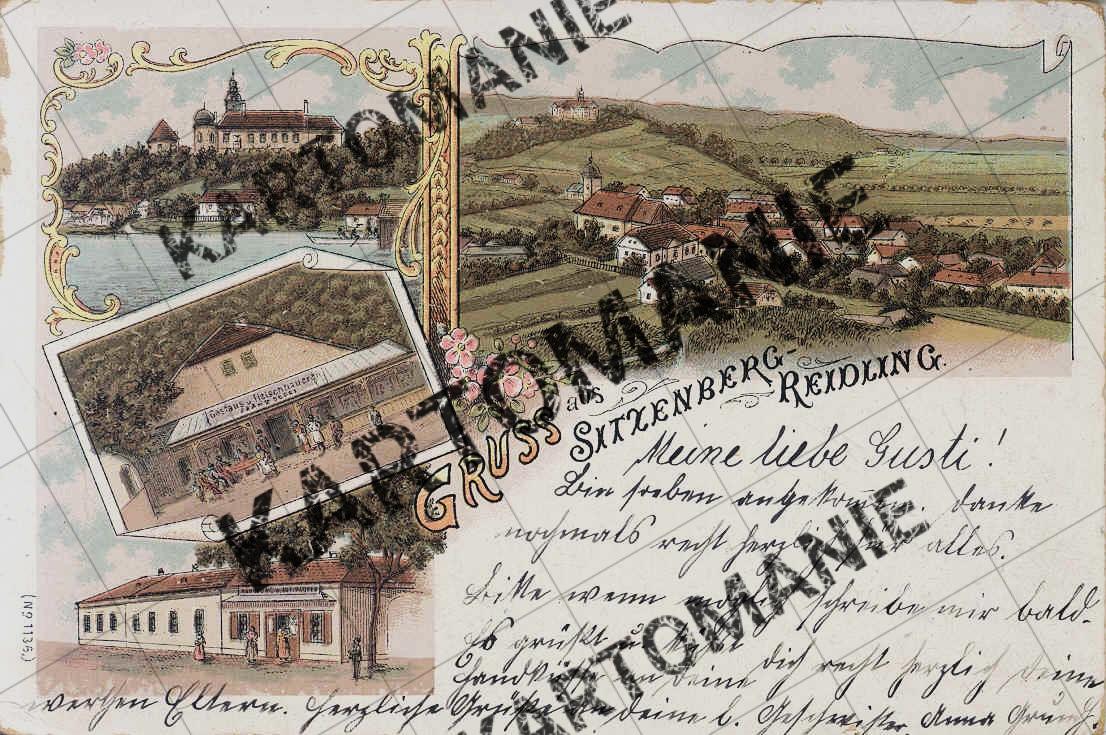 GRUSS aus
SITZENBERG-
REIDLING.
Gasthaus u. Fleischhauerei
FRANZ
Meine liebe Gusti!
Bin soeben angekommen, danke
nochmals recht herzlich für alles.
Bitte wenn möglich schreibe mir bald.
Es grüßt u. küßt dich recht herzlich deine
Handküsse an deine
werthen Eltern. Herzliche Grüße an deine l. Geschwister. Anna
(No 1136.)
KARTOMANIE
KARTOMANIE
KARTOMANIE
KARTOMANIE
KARTOMANIE